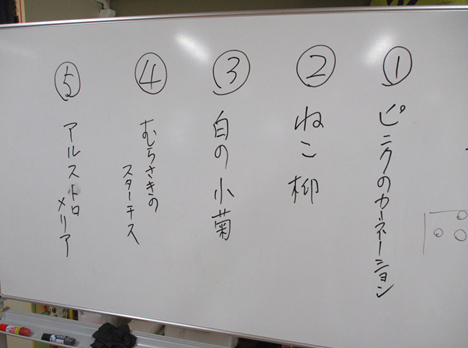 ①ピンクのカーネーション
②ねこ柳
③白の小菊
④むらさきの
スターチス
⑤アルストロ
メリア